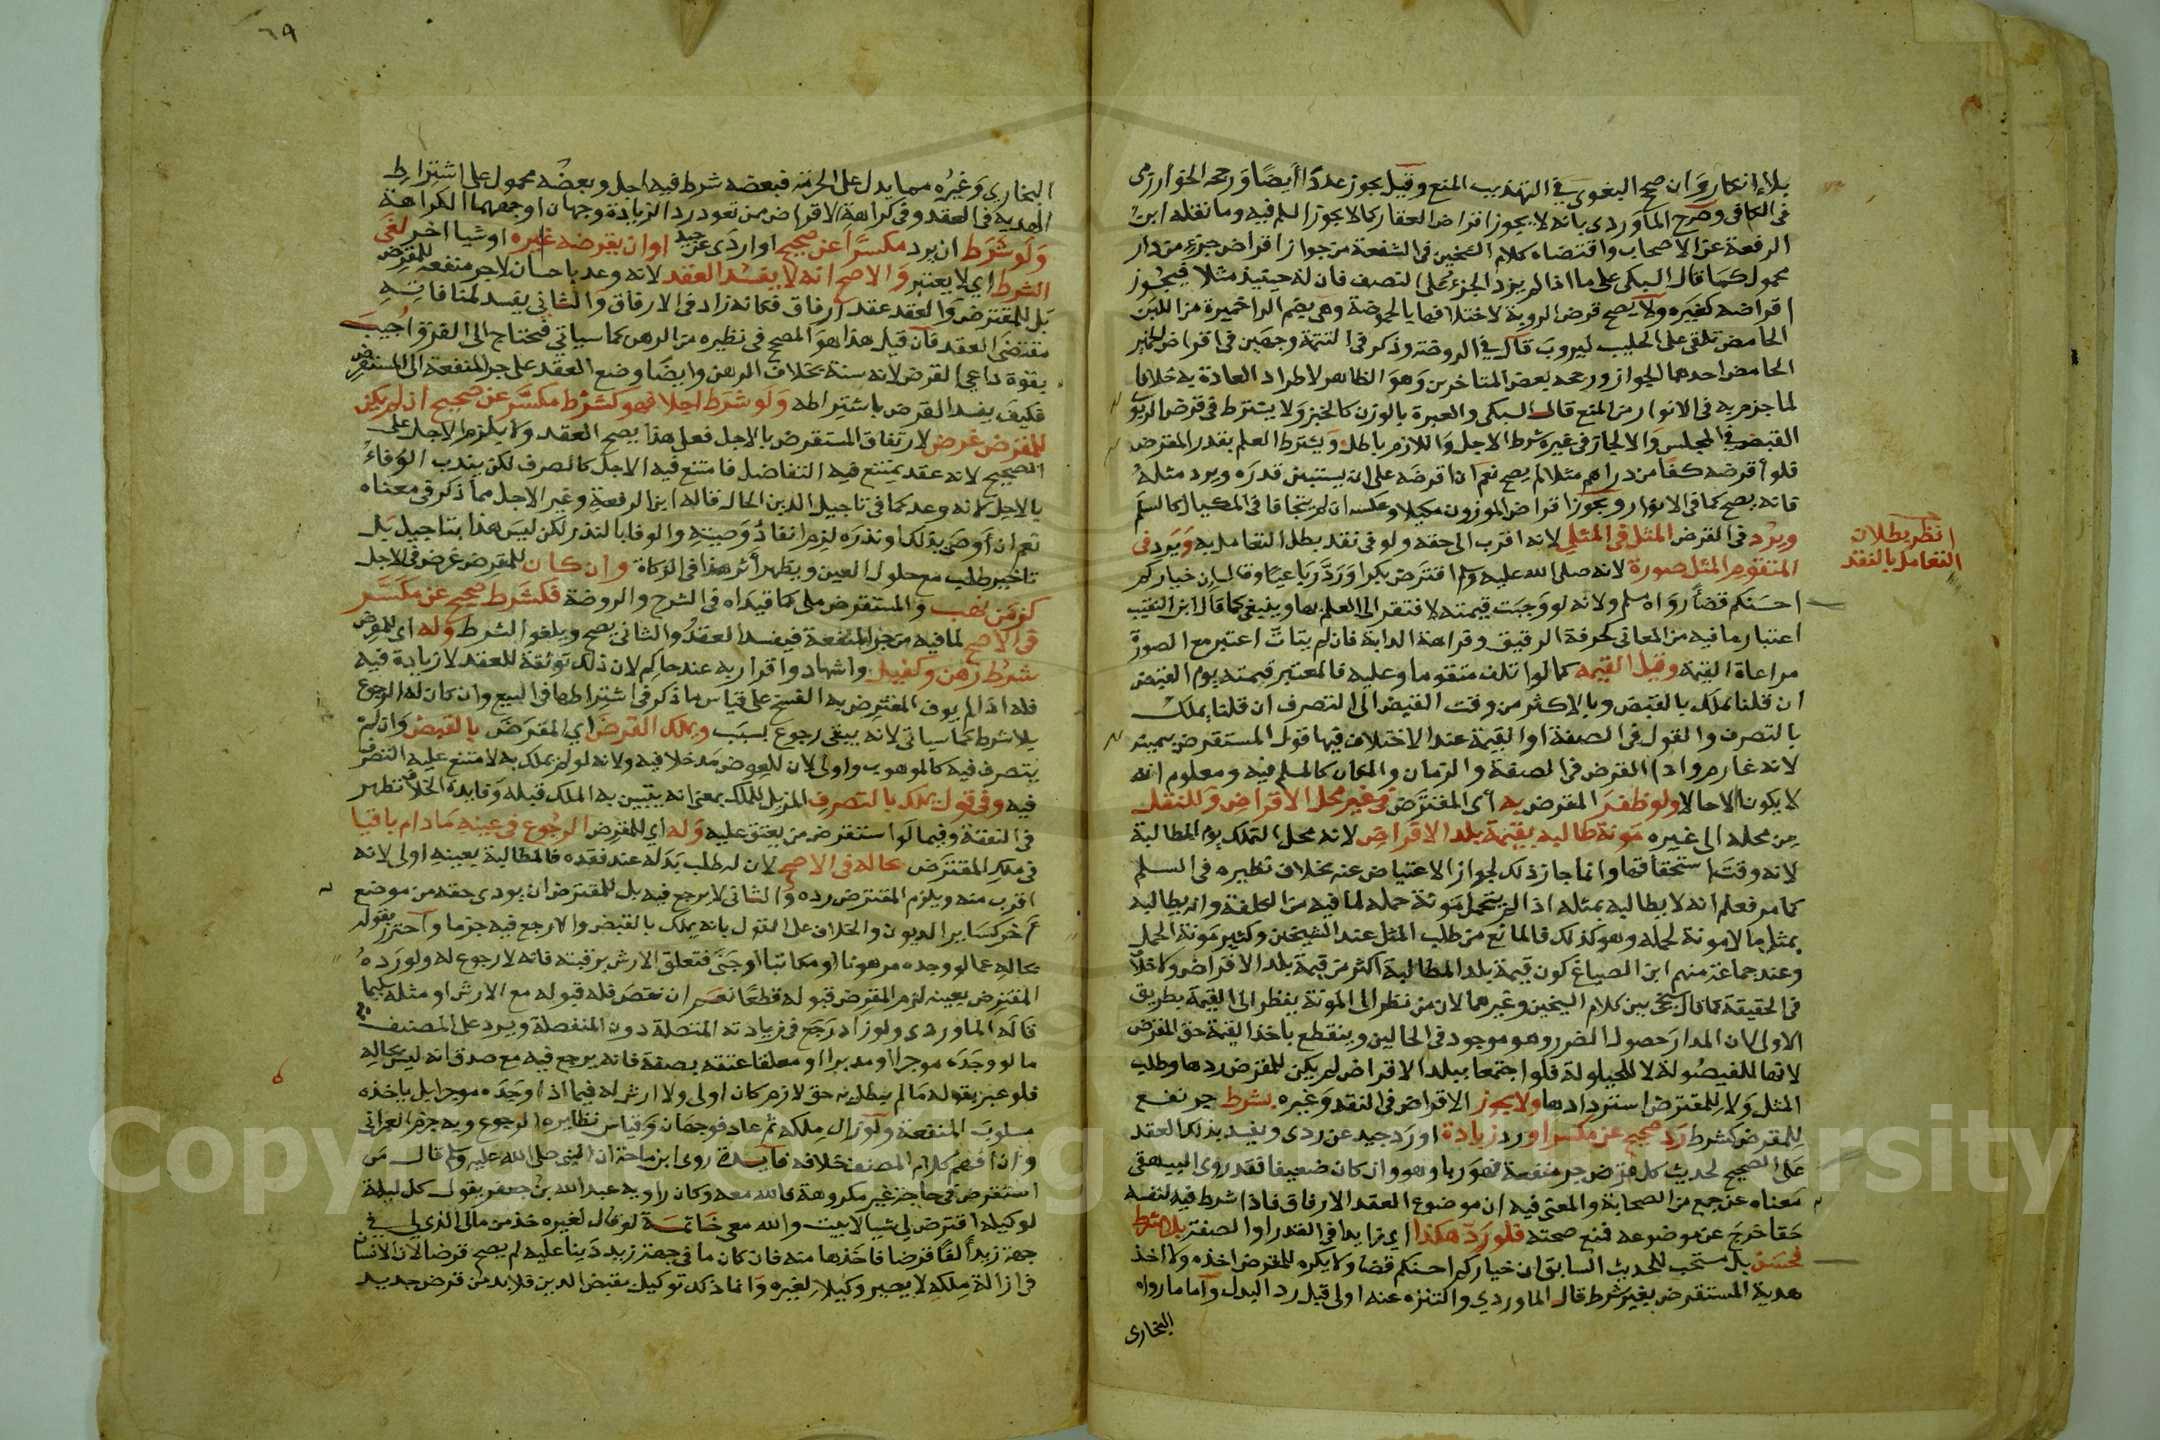 بلاء انكار وان صحح البغوي في التهذيب المنع وقيل يجوز عددا أيضا ورجحه الخوارزمي
في الكافي وصرح الماوردي بانه لا يجوز اقتراض العقار كما لا يجوز السلم فيه وما نقله ابن
الرفعة عن الاصحاب واقتضاه كلام الشيخين في الشفعة من جواز اقراض جزء من دار
محمول كما قال السبكي على ما اذا لم يزد الجزء على النصف فان له حينئذ مثلا فيجوز
اقراضه كغيره ولا يصح قرض الروبة لاختلافها بالحموضة وهي بضم الراء خميرة من اللبن
الحامض تلقى على الحليب ليروب قال في الروضة وذكر في التتمة وجهين في اقراض الخمير
الحامض احدهما الجواز ورجحه بعض المتاخرين وهو الظاهر لاطراد العادة به خلافا
لما جزم به في الانوار من المنع قال السبكي والعبرة بالوزن كالخبز ولا يشترط في قرض الربوي
القبض في المجلس والا لجاز في غيره شرط الاجل واللازم باطل ويشترط العلم بقدر المقرض
فلو أقرضه كفا من دراهم مثلا لم يصح نعم ان اقرضه على ان يستبين قدره ويرد مثله
فانه يصح كما في الانوار ويجوز اقراض الموزون مكيلا وعكسه ان لم يتجافا في المكيال كالسلم
ويرد في القرض المثل في المثلي لانه اقرب الى حقه ولو في نقد بطل التعامل به ويرد في
المتقوم المثل صورة لانه صلى الله عليه وسلم اقترض بكرا ورد رباعيا وقال ان خياركم
احسنكم قضاء رواه مسلم ولانه لو وجبت قيمته لافتقر الى العلم بها وينبغي كما قال ابن النقيب
اعتبار ما فيه من المعاني كحرفة الرقيق وفراهة الدابة فان لم يتات اعتبر مع الصورة
مراعاة القيمة وقيل القيمة كما لو اتلف متقوما وعليه فالمعتبر قيمته يوم القبض
ان قلنا يملك بالقبض وبالاكثر من وقت القبض الى التصرف ان قلنا يملك
بالتصرف والقول في الصفة او القيمة عند الاختلاف فيها قول المستقرض بيمينه
لانه غارم واداء القرض في الصفة والزمان والمكان كالمسلم فيه ومعلوم انه
لا يكون الا حالا ولو ظفر المقرض به أي المقترض في غير محل الاقراض وللنقل
من محله الى غيره مونة طالبه بقيمة بلد الاقراض لانه محل التملك يوم المطالبة
لانه وقت استحقاقها وانما جاز ذلك لجواز الاعتياض عنه بخلاف نظيره في السلم
كما مر فعلم انه لا يطالبه بمثله اذا لم يتحمل مونة حمله لما فيه من الكلفة وانه يطالبه
بمثل ما لا مونة لحمله وهو كذلك فالمانع من طلب المثل عند الشيخين وكثير مونة الحمل
وعند جماعة منهم ابن الصباغ كون قيمة بلد المطالبة اكثر من قيمة بلد الاقراض ولا خلاف
في الحقيقة كما قال شيخي بين كلام الشيخين وغيرهما لان من نظر الى المونة ينظر الى القيمة بطريق
الاولى لان المدار حصول الضرر وهو موجود في الحالين وينقطع باخذ القيمة حق المقرض
لانها للفيصولة لا للحيلولة فلو اجتمعا ببلد الاقراض لم يكن للمقرض ردها وطلب
المثل ولا للمقترض استردادها ولا يجوز الاقراض في النقد وغيره بشرط جر نفع
للمقرض كشرط رد صحيح عن مكسر او رد زيادة او رد جيد عن ردي ويفسد بذلك العقد
على الصحيح لحديث كل قرض جر منفعة فهو ربا وهو وان كان ضعيفا فقد روى البيهقي
معناه عن جمع من الصحابة والمعنى فيه ان موضوع العقد الارفاق فاذا شرط فيه لنفسه
حقا خرج عن موضوعه فمنع صحته فلو رد هكذا اي زايدا في القدر او الصفة بلا شرط
فحسن بل مستحب للحديث السابق ان خياركم احسنكم قضاء ولا يكره للمقرض اخذه ولا اخذ
هدية المستقرض بغير شرط قال الماوردي والتنزه عنه اولى قبل رد البدل وأما ما رواه
البخاري
انظر بطلان
التعامل بالنقد
٦٩
البخاري وغيره مما يدل على الحرمة فبعضه شرط فيه اجل وبعضه محمول على اشتراط
الهدية في العقد وفي كراهة الاقراض ممن تعود رد الزيادة وجهان اوجههما الكراهة
ولو شرط ان يرد مكسرا عن صحيح او اردى عن جيد او ان يقرضه غيره او شيا اخر لغى
الشرط اي لا يعتبر والاصح انه لا يفسد العقد لانه وعد باحسان لا جر منفعة للمقرض
بل للمقترض والعقد عقد ارفاق فكانه زاد في الارفاق والثاني يفسد لمنافاته
مقتضى العقد فان قيل هذا هو المصحح في نظيره من الرهن كما سياتي فيحتاج الى الفرق اجيب
بقوة داعي القرض لانه سنة بخلاف الرهن وايضا وضع العقد على جر المنفعة الى المستقرض
فكيف يفسد القرض باشتراطه ولو شرط اجلا فهو كشرط مكسر عن صحيح ان لم يكن
للمقرض غرض لارتفاق المستقرض بالاجل فعلى هذا يصح العقد ولا يلزم الاجل على
الصحيح لانه عقد يمتنع فيه التفاضل فامتنع فيه الاجل كالصرف لكن يندب الوفاء
بالاجل لانه وعد كما في تاجيل الدين الحال قاله ابن الرفعة وغير الاجل مما ذكر في معناه
نعم ان أوصى بذلك او نذره لزم انفاذ وصيته والوفا بالنذر لكن ليس هذا بتاجيل بل
تاخير طلب مع حلول العين ويظهر أثر هذا في الزكاة وان كان للمقرض غرض في الاجل
كزمن نهب والمستقرض ملي كما قيداه في الشرح والروضة فكشرط صحيح عن مكسر
في الاصح لما فيه من جر المنفعة فيفسد العقد والثاني يصح ويلغو الشرط وله اي للمقرض
شرط رهن وكفيل واشهاد واقرار به عند حاكم لان ذلك توثقة للعقد لا زيادة فيه
فله اذا لم يوف المقترض به الفسخ على قياس ما ذكر في اشتراطها في البيع وان كان له الرجوع
بلا شرط كما سياتي لانه يبقى رجوع بسبب ويملك القرض أي المقرض بالقبض وان لم
يتصرف فيه كالموهوب واولى لان للعوض مدخلا فيه ولانه لو لم يملك به لامتنع عليه التصرف
فيه وفي قول يملك بالتصرف المزيل للملك بمعنى انه يتبين به الملك قبله وفايدة الخلاف تظهر
في النفقة وفيما لو استقرض من يعتق عليه وله اي للمقرض الرجوع في عينه ما دام باقيا
في ملك المقترض بحاله في الاصح لان له طلب بدله عند فقده فالمطالبة بعينه اولى لانه
اقرب منه ويلزم المقترض رده والثاني لا يرجع فيه بل للمقترض ان يودي حقه من موضع
أخر كساير الديون والخلاف على القول بانه يملك بالقبض والا رجع فيه جزما واحترز بقوله
بحاله عما لو وجده مرهونا او مكاتبا او جنى فتعلق الارش برقبته فانه لا رجوع له ولو رده
المقترض بعينه لزم المقرض قبوله قطعا نعم ان نقص فله قبوله مع الارش او مثله سليما
قاله الماوردي ولو زاد رجع في زيادته المتصلة دون المنفصلة ويرد على المصنف
ما لو وجده موجرا او مدبرا او معلقا عتقه بصفة فانه يرجع فيه مع صدق انه ليس بحاله
فلو عبر بقوله ما لم يبطل به حق لازم كان اولى ولا ارش له فيما اذا وجده موجرا بل ياخذه
مسلوب المنفعة ولو زال ملكه ثم عاد فوجهان وقياس نظايره الرجوع وبه جزم العمراني
وان افهم كلام المصنف خلافه فايدة روى ابن ماجة ان النبي صلى الله عليه وسلم قال من
استقرض في حاجة غير مكروهة فالله معه وكان راويه عبد الله بن جعفر يقول كل ليلة
لوكيله اقترض لي شيا لابيت والله معي خاتمة لو قال لغيره خذ من مالي الذي لي في
جهة زيد ألفا قرضا فاخذها منه فان كان ما في جهة زيد دينا عليه لم يصح قرضا لان الانسان
في ازالة ملكه لا يصير وكيلا لغيره وانما ذلك توكيل بقبض الدين فلا بد من قرض جديد